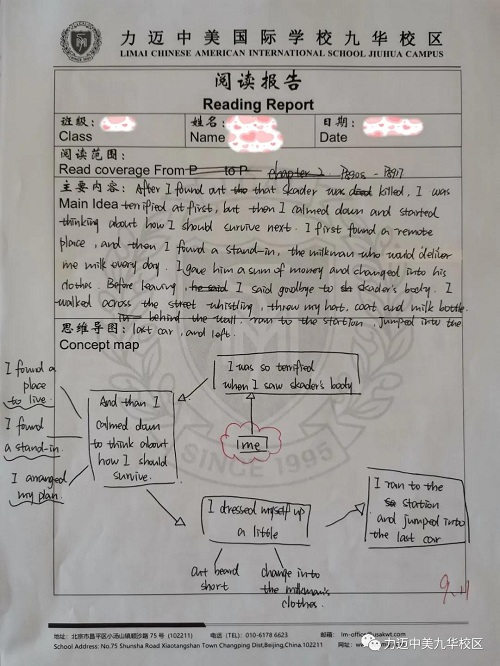 力迈中美国际学校九华校区
LIMAI CHINESE AMERICAN INTERNATIONAL SCHOOL JIUHUA CAMPUS
阅读报告
Reading Report
班级: 姓名: 日期:
Class Name Date
阅读范围:
Read coverage From P to P chapter 2 P8905 - P8917
主要内容: After I found out tho that skader was dead killed, I was
Main Idea terrified at first, but then I calmed down and started
thinking about how I should survive next. I first found a remote
place, and then I found a stand-in, the milkman who would deliver
me milk every day. I gave him a sum of money and changed into his
clothes. Before leaving, he said I said goodbye to sk skader's body. I
walked across the street whistling, threw my hat, coat and milk bottle
in behind the wall, ran to the station, jumped into the
思维导图: last car, and left.
Concept map
I was so terrified
when I saw skader's body
I found a
place
to live.
I found
a stand-in.
I arranged
my plan.
And than I
calmed down
to think about
how I should
survive.
me
SINCE 1995
I dressed myself up
a little
cut beard
short
change into
the milkman's
clothes.
I ran to the
sa station
and jumped into
the last car
9.11
地址:北京市昌平区小汤山镇顺沙路 75 号 (102211) 电话 (TEL): 010-6178 6623 邮箱:
School Address: No.75 Shunsha Road Xiaotangshan Town Changping Dist,Beijing,China.102211
力迈中美九华校区